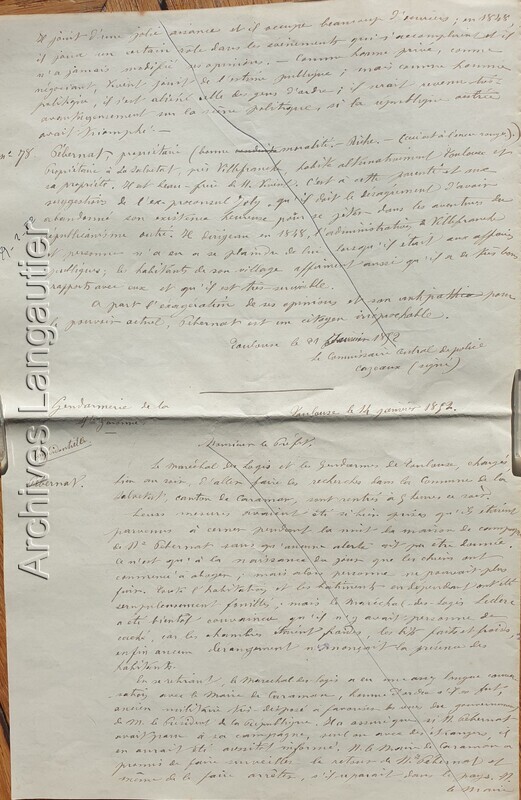 Il jouit d'une jolie aisance et il occupe beaucoup d'ouvriers; en 1848,
il joua un certain rôle dans les évènements qui s'accomplirent et il
n'a jamais modifié ses opinions. — Comme homme privé, comme
négociant, Vivent jouit de l'estime publique; mais comme homme
politique, il s'est aliéné celle des gens d'ordre; il serait revenu
avantageusement sur la scène politique, si la république outrée
avait triomphé. —
n° 78 Pibernat, propriétaire (bonne moralité. Riche. —
Propriétaire à La Salvetat, près Villefranche, habite alternativement Toulouse et
sa propriété. Il est beau-frère de M. Vivent. C'est à cette parenté et aux
suggestions de l'ex-proconsul Joly, qu'il doit le désagrément d'avoir
abandonné son existence heureuse pour se jeter dans les aventures du
républicanisme outré. Il dirigea en 1848, l'administration de Villefranche
et personne n'a eu à se plaindre de lui lorsqu'il était aux affaires
publiques; les habitants de son village affirment aussi qu'il a de très bons
rapports avec eux et qu'il est très serviable.
A part l'exagération de ses opinions et son antipathie pour
le pouvoir actuel, Pibernat est un citoyen irréprochable.
Toulouse le 21 Janvier 1852
Le Commissaire central de police
Cazeaux (signé)
Gendarmerie de la
Hte Garonne
Toulouse le 14 janvier 1852.
Monsieur le Préfet.
Pibernat.
Le Maréchal des logis et les Gendarmes de Toulouse, chargés
hier au soir, d'aller faire des recherches dans la Commune de la
Salvetat, canton de Caraman, sont rentrés à 5 heures ce soir.
Leurs mesures avaient été si bien prises qu'ils étaient
parvenus à cerner pendant la nuit la maison de campagne
de Mr Pibernat sans qu'aucune alerte ait pu être donnée.
Ce n'est qu'à la naissance du jour que les chiens ont
commencé à aboyer; mais alors personne ne pouvait plus
fuir. Toute l'habitation et les bâtiments en dépendant ont été
scrupuleusement fouillés, mais le Maréchal-des-logis Leclerc
a été bientôt convaincu qu'il n'y avait personne de
caché, car les chambres étaient froides, les lits faits et froids,
enfin aucun dérangement n'annonçait la présence des
habitants.
En se retirant, le Maréchal des logis a eu une assez longue conver-
sation avec le Maire de Caraman, homme d'ordre
ancien militaire très disposé à favoriser les vues du gouvernement
de M. le Président de la République. Il a assuré que si M. Pibernat
avait paru à sa campagne, seul ou avec des étrangers, il
en aurait été aussitôt informé. M. le Maire de Caraman a
promis de faire surveiller le retour de Mr Pibernat et
même de le faire arrêter, s'il reparait dans le pays. M.
le Maire
Archives Langautier